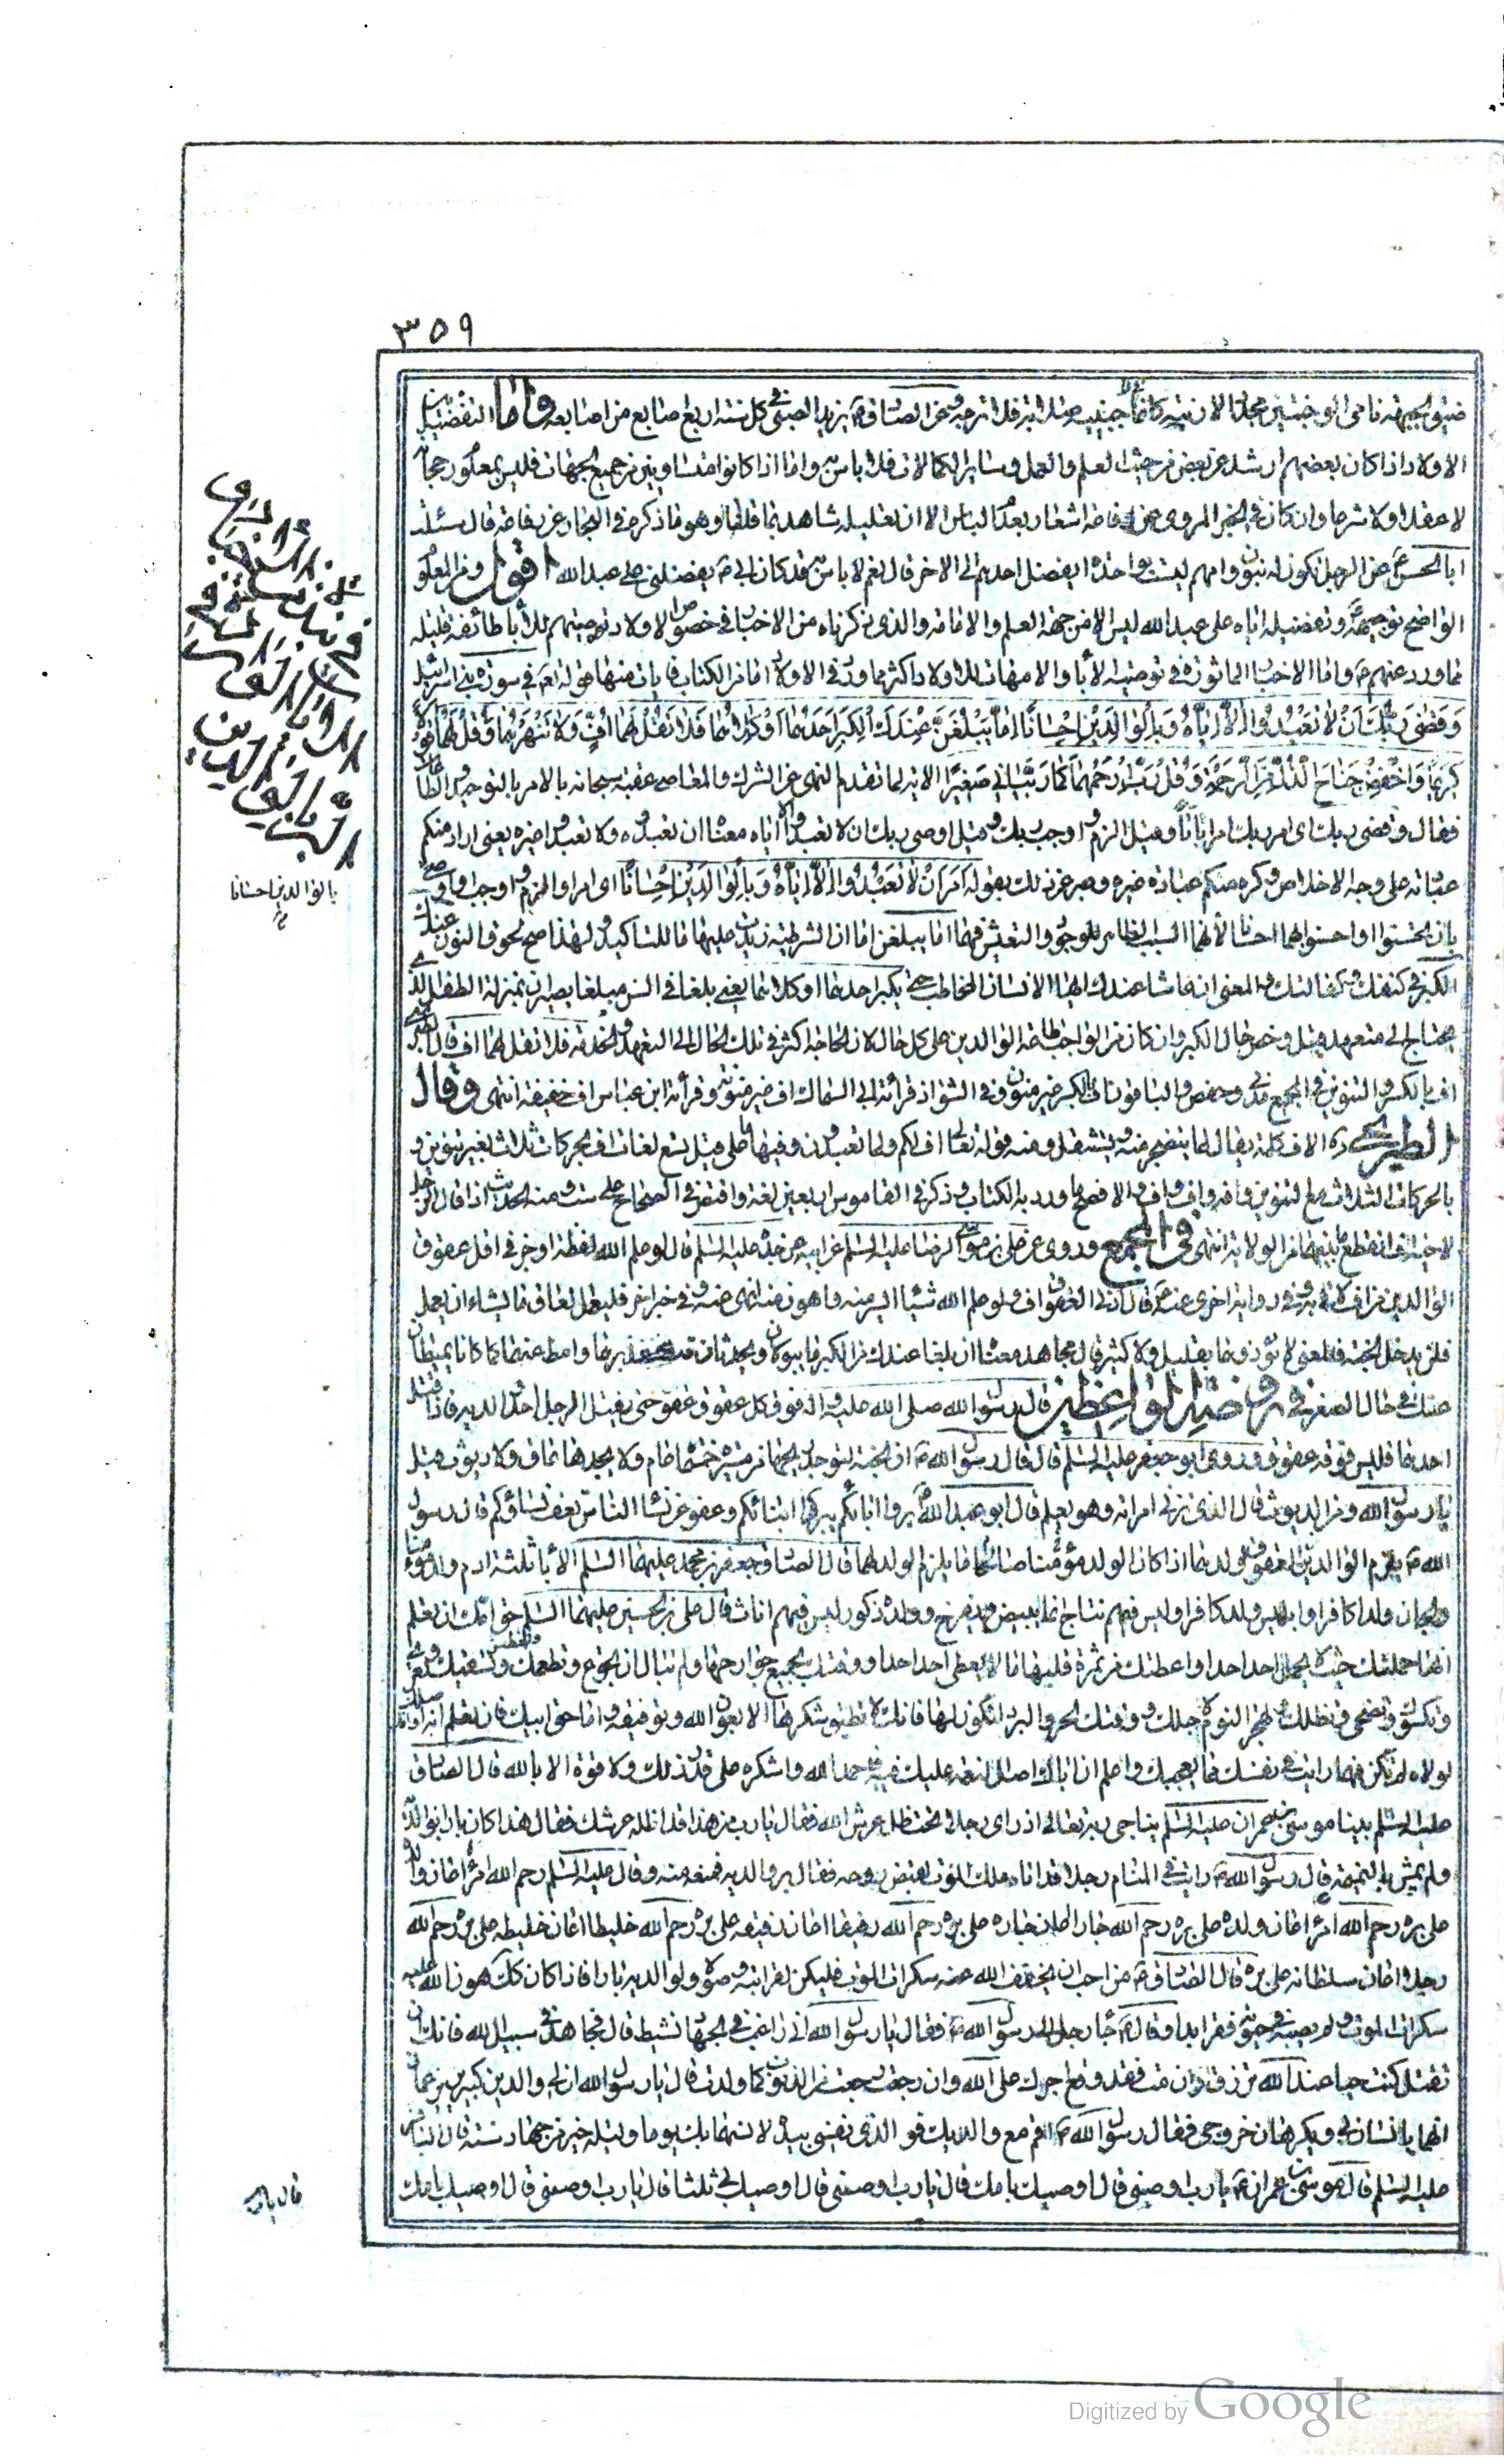 ٣٥٩
الاولاد اذا كان بعضهم ارشد عن بعض من حيث العلم والعمل وساير الكمالات فلا باس به واما اذا كانوا متساويين من جميع الجهات فليس بمعلوم رجحانه
لا عقلا ولا شرعا وان كان في الخبر المروى عن رفاعه اشعار بعدم الباس الا ان تعليله شاهد بما قلنا وهو ما ذكره في البحار عن رفاعه قال سئلت
ابا الحسن ع عن الرجل يكون له بنون وامهم ليست بواحدة ايفضل احدهم على الاخر قال نعم لا باس به قد كان ابى ع يفضلنى على عبد الله اقول ومن المعلوم
الواضح توجيهه وتفضيله اياه على عبد الله ليس الا من جهة العلم والامامة والذى ذكرناه من الاخبار في خصوص الاولاد وتوصيتهم للاباء طائفة قليلة
مما ورد عنهم ع واما الاخبار الماثورة في توصية الاباء والامهات للاولاد اكثر مما ورد في الاولاد اما من الكتاب فايات منها قوله تعه في سورة بنى اسرائيل
وَقَضٰى رَبُّكَ اَنْ لٰا تَعْبُدُوا اِلّٰا اِيّٰاهُ وَبِالْوٰالِدَيْنِ اِحْسٰانًا اِمّٰا يَبْلُغَنَّ عِنْدَكَ الْكِبَرَ اَحَدُهُمٰا اَوْ كِلٰاهُمٰا فَلٰا تَقُلْ لَهُمٰا اُفٍّ وَلٰا تَنْهَرْهُمٰا وَقُلْ لَهُمٰا قَوْلًا
كَرِيمًا وَاخْفِضْ جَنٰاحَ الذُّلِّ مِنَ الرَّحْمَةِ وَقُلْ رَبِّ ارْحَمْهُمٰا كَمٰا رَبَّيٰانِي صَغِيرًا الاية لما تقدم النهى عن الشرك والمعاصى عقبه سبحانه بالامر بالتوحيد والطاعات
فقال وقضى ربك اى امر ربك امرا باتا وقيل الزم واوجب ربك وقيل اوصى ربك ان لا تعبدوا الا اياه معناه ان تعبدوه ولا تعبدوا غيره يعنى اراد منكم
عبادته على وجه الاخلاص وكره منكم عبادة غيره وعبر عن ذلك بقوله اَمَرَ اَنْ لٰا تَعْبُدُوا اِلّٰا اِيّٰاهُ وَبِالْوٰالِدَيْنِ اِحْسٰانًا اى امر او الزم واوجب واوصى
بان تحسنوا او احسنوا بهما احسانا لانهما السبب الظاهر للوجود والتعيش فيهما اما يبلغن اما ان الشرطية زيدت عليها ما للتاكيد ولهذا صح لحوق النون عندك
الكبر في كنفك وكفالتك والمعنى ان عاشا عندك ايها الانسان المخاطب حتى يكبر احدهما او كلاهما يعنى بلغا في السن مبلغا يصيران بمنزلة الطفل الذى
يحتاج الى متعهد وقيل وخص حال الكبر وان كان من الواجب طاعة الوالدين على كل حال لان الحاجة اكثر في تلك الحال الى التعهد والخدمة فلا تقل لهما اف
اف بالكسر والتنوين في الجميع مدنى وحفص والباقون بالكسر غير منون وفي الشواذ قرائة ابى السماك اف غير منونة وقرائة ابن عباس اف خفيفة انتهى وقال
الطريحى ره الاف كلمة يقال لما يتضجر منه ويستثقل ومنه قوله تعالى اف لكم ولما تعبدون وفيها على ما قيل تسع لغات اف بحركات ثلاث بغير تنوين و
بالحركات الثلاث مع التنوين وافه واف واف والافصح ما ورد به الكتاب وذكر في القاموس اربعين لغة واقتصر في الصحاح على ست ومنه الحديث اذا قال الرجل
لاخيه اف انقطع ما بينهما من الولاية انتهى في المجمع وروى عن على بن موسى الرضا عليه السلم عن ابيه عن جده عليه السلم قال لو علم الله لفظة اوجز في اقل عقوق
الوالدين من اف لاتى به وفي رواية اخرى عنه ع قال ادنى العقوق اف ولو علم الله شيئا ايسر منه واهون منه لنهى عنه وفي خبر اخر فليعمل العاق ما يشاء ان يعمل
فلن يدخل الجنة فالمعنى لا تؤذهما بقليل ولا كثير قال مجاهد معناه ان بلغا عندك من الكبر ما يبولان ويحدثان فلا تتقذرهما وامط عنهما كما كانا يميطان
عنك في حال الصغر وفي روضة الواعظين قال رسول الله صلى الله عليه واله فوق كل عقوق عقوق حتى يقتل الرجل احد والديه فاذا قتل
احدهما فليس فوقه عقوق وروى ابو جعفر عليه السلم قال قال رسول الله ص ان الجنة ليوجد ريحها من مسيرة خمسماة عام ولا يجدها عاق ولا ديوث قيل
يا رسول الله وما الديوث قال الذى تزنى امراته وهو يعلم قال ابو عبد الله ع بروا ابائكم يبركم ابنائكم وعفوا عن نساء الناس تعف نساؤكم قال رسول
الله ص يلزم الوالدين العقوق لولدهما اذا كان الولد مؤمنا صالحا ما يلزم الولد لهما قال الصادق جعفر بن محمد عليهما السلم الاباء ثلثة ادم ولد مؤمنا
والجان ولد كافرا وابليس ولد كافرا وليس فيهم نتاج انما يبيض ويفرخ وولده ذكور ليس فيهم اناث قال على بن الحسين عليهما السلم حق امك ان تعلم
انها حملتك حيث لا يحمل احد احدا واعطتك من ثمرة قلبها ما لا يعطى احد احدا ووقتك بجميع جوارحها ولم تبال ان تجوع وتطعمك وتعطش وتسقيك وتعرى
وتكسوك وتضحى وتظلك وتهجر النوم لاجلك ووقتك الحر والبرد لتكون لها فانك لا تطيق شكرها الا بعون الله وتوفيقه واما حق ابيك فان تعلم انه اصلك وانه
لولاه لم تكن فمهما رايت في نفسك مما يعجبك واعلم ان اباك اصل النعمة عليك فيه فاحمد الله واشكره على قدر ذلك ولا قوة الا بالله قال الصادق
عليه السلم بينا موسى بن عمران عليه السلم يناجى ربه تعالى اذ راى رجلا تحت ظل عرش الله فقال يا رب من هذا قد اظله عرشك فقال هذا كان بارا بوالديه
ولم يمش بالنميمة قال رسول الله ص رايت في المنام رجلا قد اتاه ملك الموت لقبض روحه فقال بر والديه فمنعه منه وقال عليه السلم رحم الله امرءا اعان والده
على بره رحم الله امرءا اعان ولده على بره رحم الله جارا اعان جاره على بره رحم الله رفيقا اعان رفيقه على بره رحم الله خليطا اعان خليطه على بره رحم الله
رجلا اعان سلطانه على بره قال الصادق ع من احب ان يخفف الله عنه سكرات الموت فليكن لقرابته وصولا ولوالديه بارا فاذا كان كك هون الله عليه
سكرات الموت ولم يصبه في حيوته فقر ابدا وقال ع جاء رجل الى رسول الله ص فقال يا رسول الله انى راغب في الجهاد نشيط قال فجاهد في سبيل الله فانك ان
تقتل كنت حيا عند الله ترزق وان مت فقد وقع اجرك على الله وان رجعت رجعت من الذنوب كما ولدت قال يا رسول الله ان لى والدين كبيرين يزعمان
انهما يانسان بى ويكرهان خروجى فقال رسول الله ص اقم مع والديك فو الذى نفسى بيده لانسهما بك يوما وليلة خير من جهاد سنة قال الباقر
عليه السلم قال موسى بن عمران ع يا رب اوصنى قال اوصيك بى قال يا رب اوصنى قال اوصيك بى ثلثا قال يا رب اوصنى قال اوصيك بامك
بالوالدين احسانا
قال يا رب